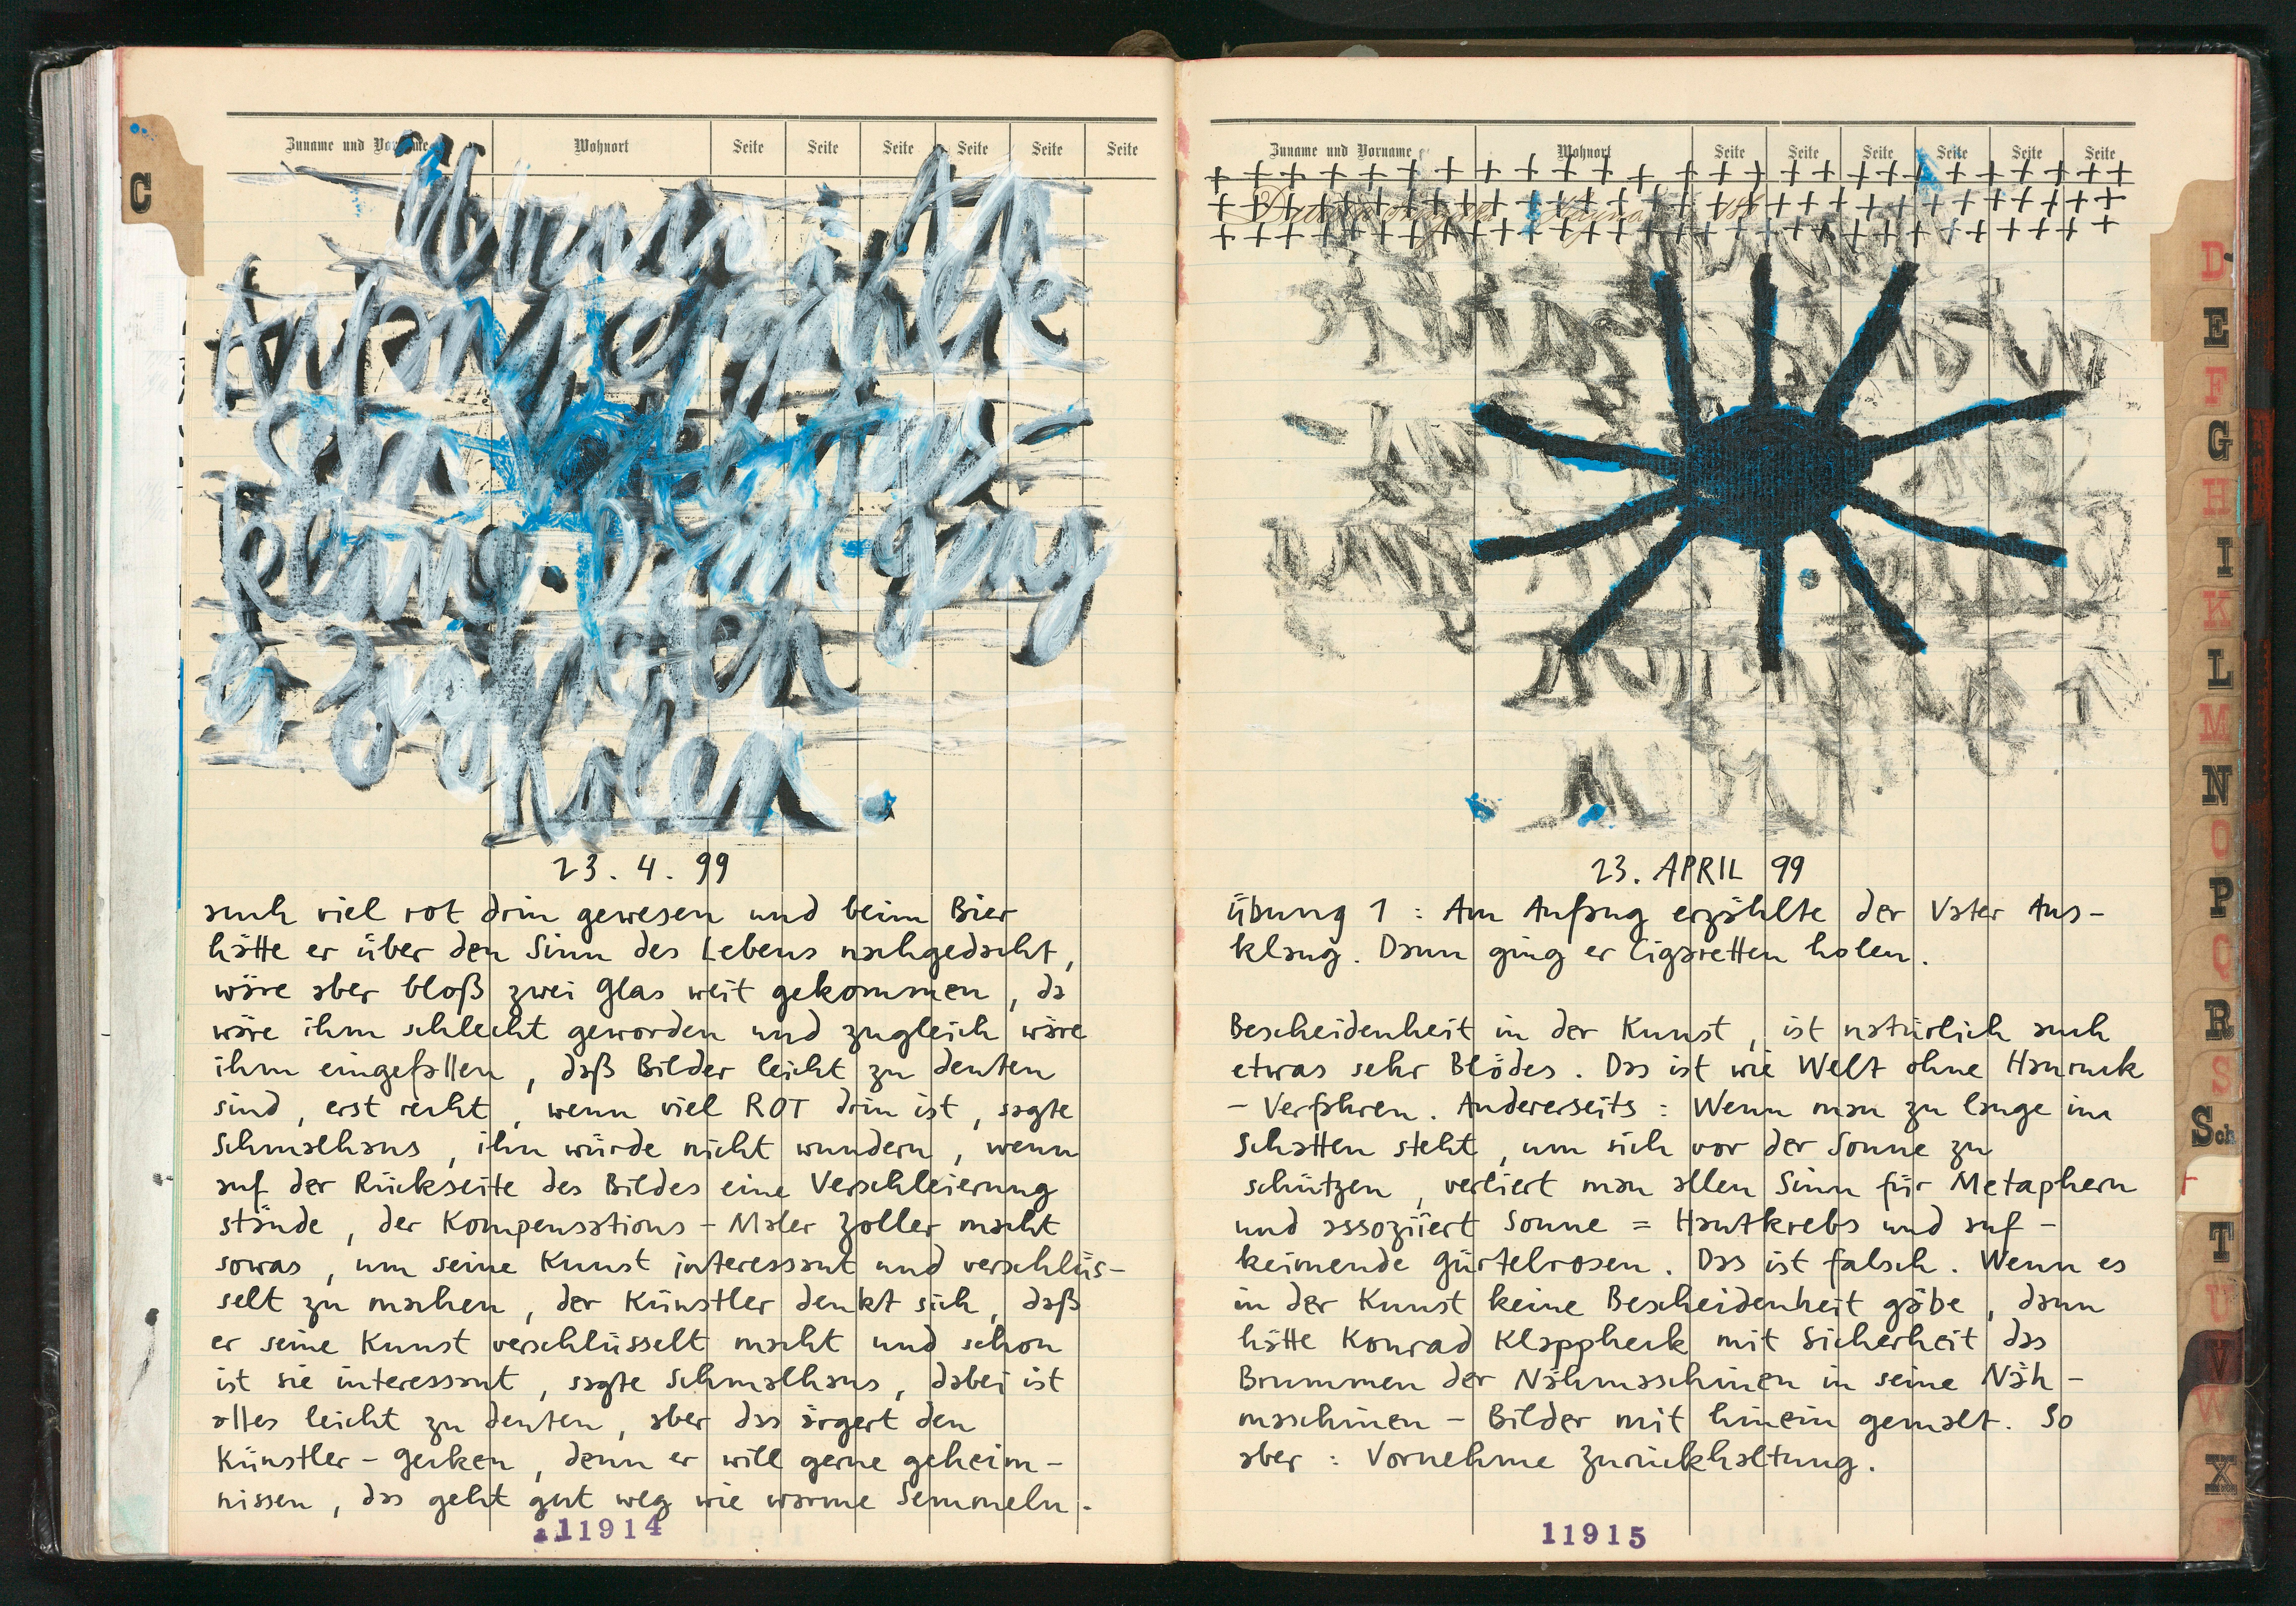 Zuname und Vorname Wohnort Seite Seite Seite Seite Seite Seite
C
Übung 1: Am
Anfang erzählte
der Vater Aus-
klang. Dann ging
er Zigaretten
holen
23. 4. 99
auch viel rot drin gewesen und beim Bier
hätte er über den Sinn des Lebens nachgedacht,
wäre aber bloß zwei Glas weit gekommen, da
wäre ihm schlecht geworden und zugleich wäre
ihm eingefallen, daß Bilder leicht zu deuten
sind, erst recht, wenn viel ROT drin ist, sagte
Schmalhans, ihn würde nicht wundern, wenn
auf der Rückseite des Bildes eine Verschleierung
stände, der Kompensations-Maler Zoller macht
sowas, um seine Kunst interessant und verschlüs-
selt zu machen, der Künstler denkt sich, daß
er seine Kunst verschlüsselt macht und schon
ist sie interessant, sagte Schmalhans, dabei ist
alles leicht zu deuten, aber das ärgert den
Künstler-Gecken, denn er will gerne geheim-
nissen, das geht gut weg wie warme Semmeln.
11914
Zuname und Vorname Wohnort Seite Seite Seite Seite Seite Seite
23. APRIL 99
Übung 1: Am Anfang erzählte der Vater Aus-
klang. Dann ging er Cigaretten holen.
Bescheidenheit in der Kunst, ist natürlich auch
etwas sehr Blödes. Das ist wie Welt ohne Hauruck
- Verfahren. Andererseits: Wenn man zu lange im
Schatten steht, um sich vor der Sonne zu
schützen, verliert man allen Sinn für Metaphern
und assoziiert Sonne = Hautkrebs und auf-
keimende Gürtelrosen. Das ist falsch. Wenn es
in der Kunst keine Bescheidenheit gäbe, dann
hätte Konrad Klappheck mit Sicherheit das
Brummen der Nähmaschinen in seine Näh-
maschinen - Bilder mit hinein gemalt. So
aber: Vornehme Zurückhaltung.
11915
D
E
F
G
H
I
K
L
M
N
O
P
Q
R
S
Sch
T
U
V
W
X